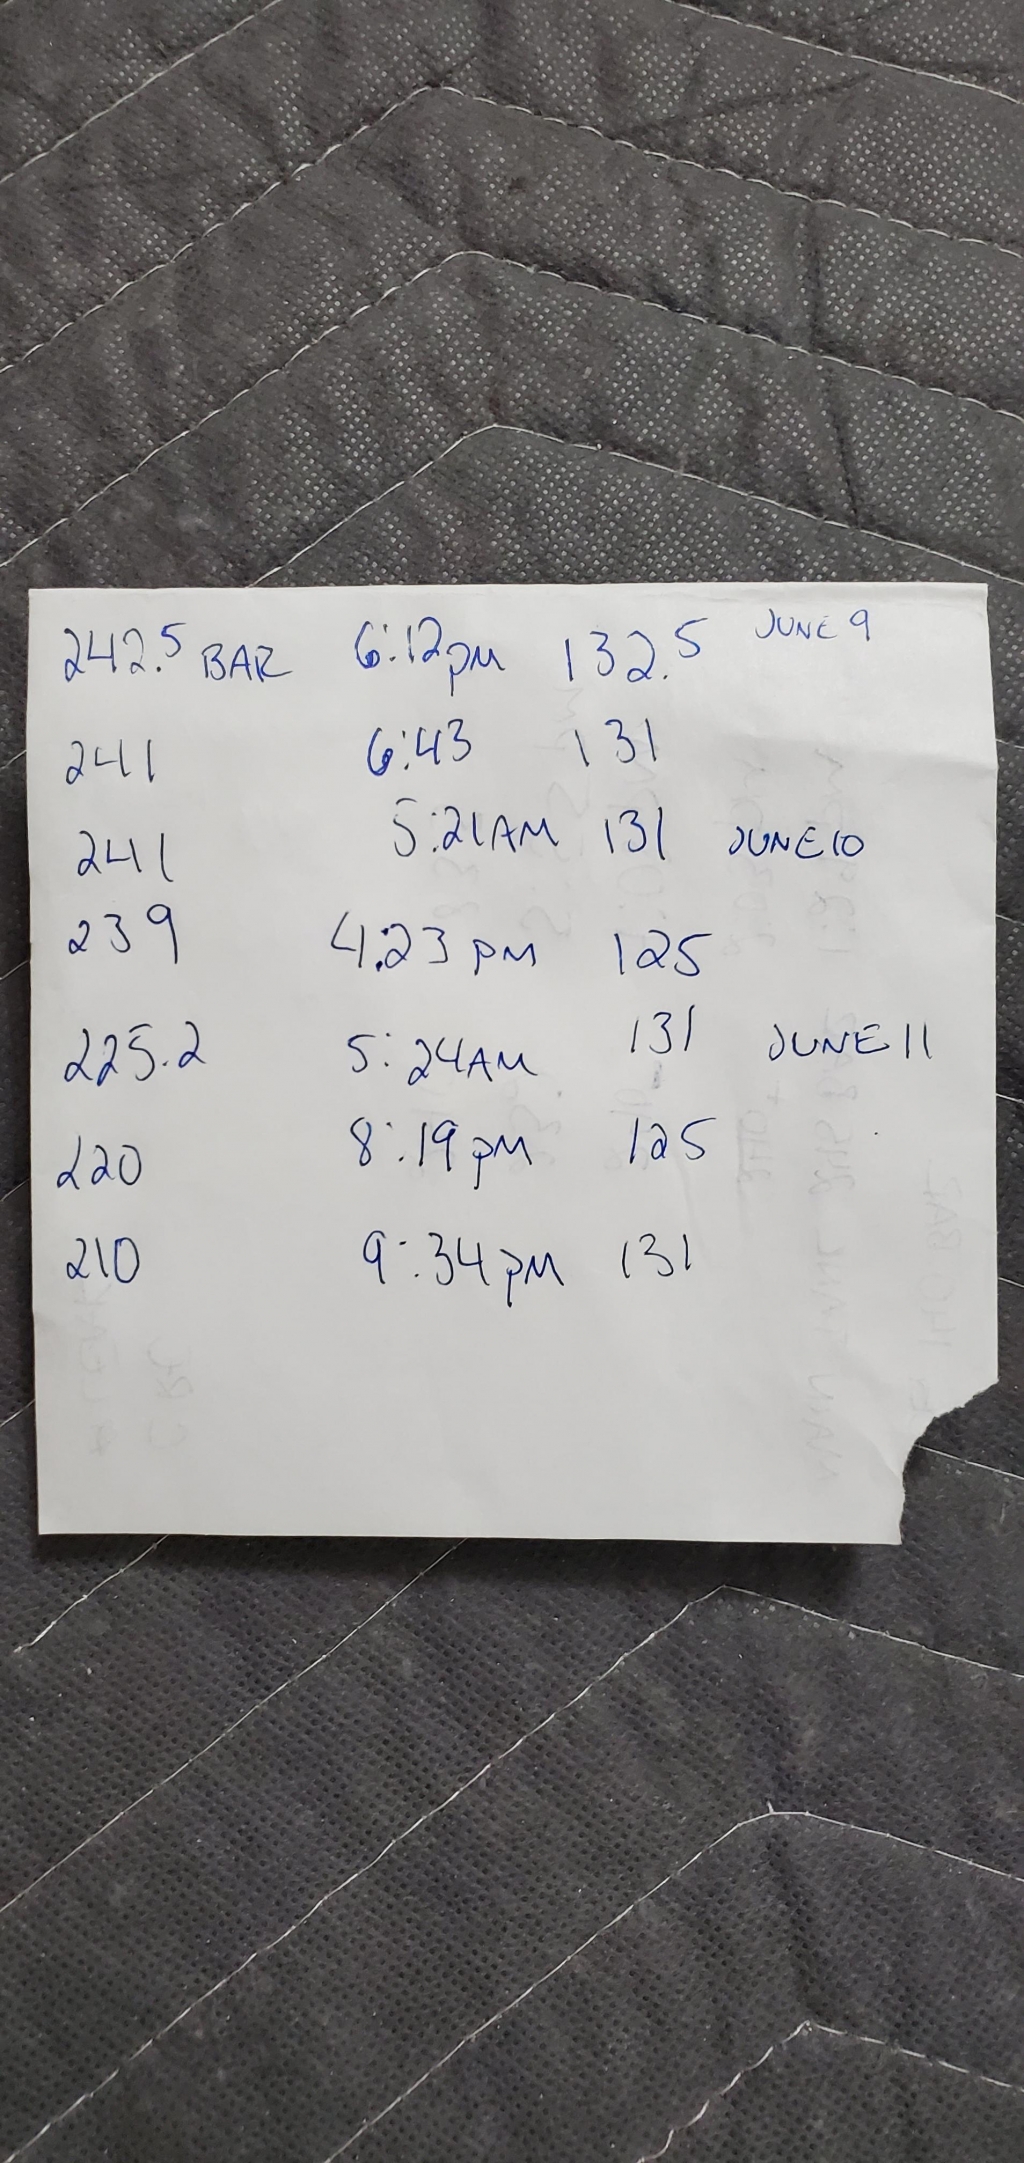 242.5 BAR 6:12pm 132.5 JUNE 9
241 6:43 131
241 5:21AM 131 JUNE 10
239 4:23 pm 125
225.2 5:24AM 131 JUNE 11
220 8:19pm 125
210 9:34pm 131